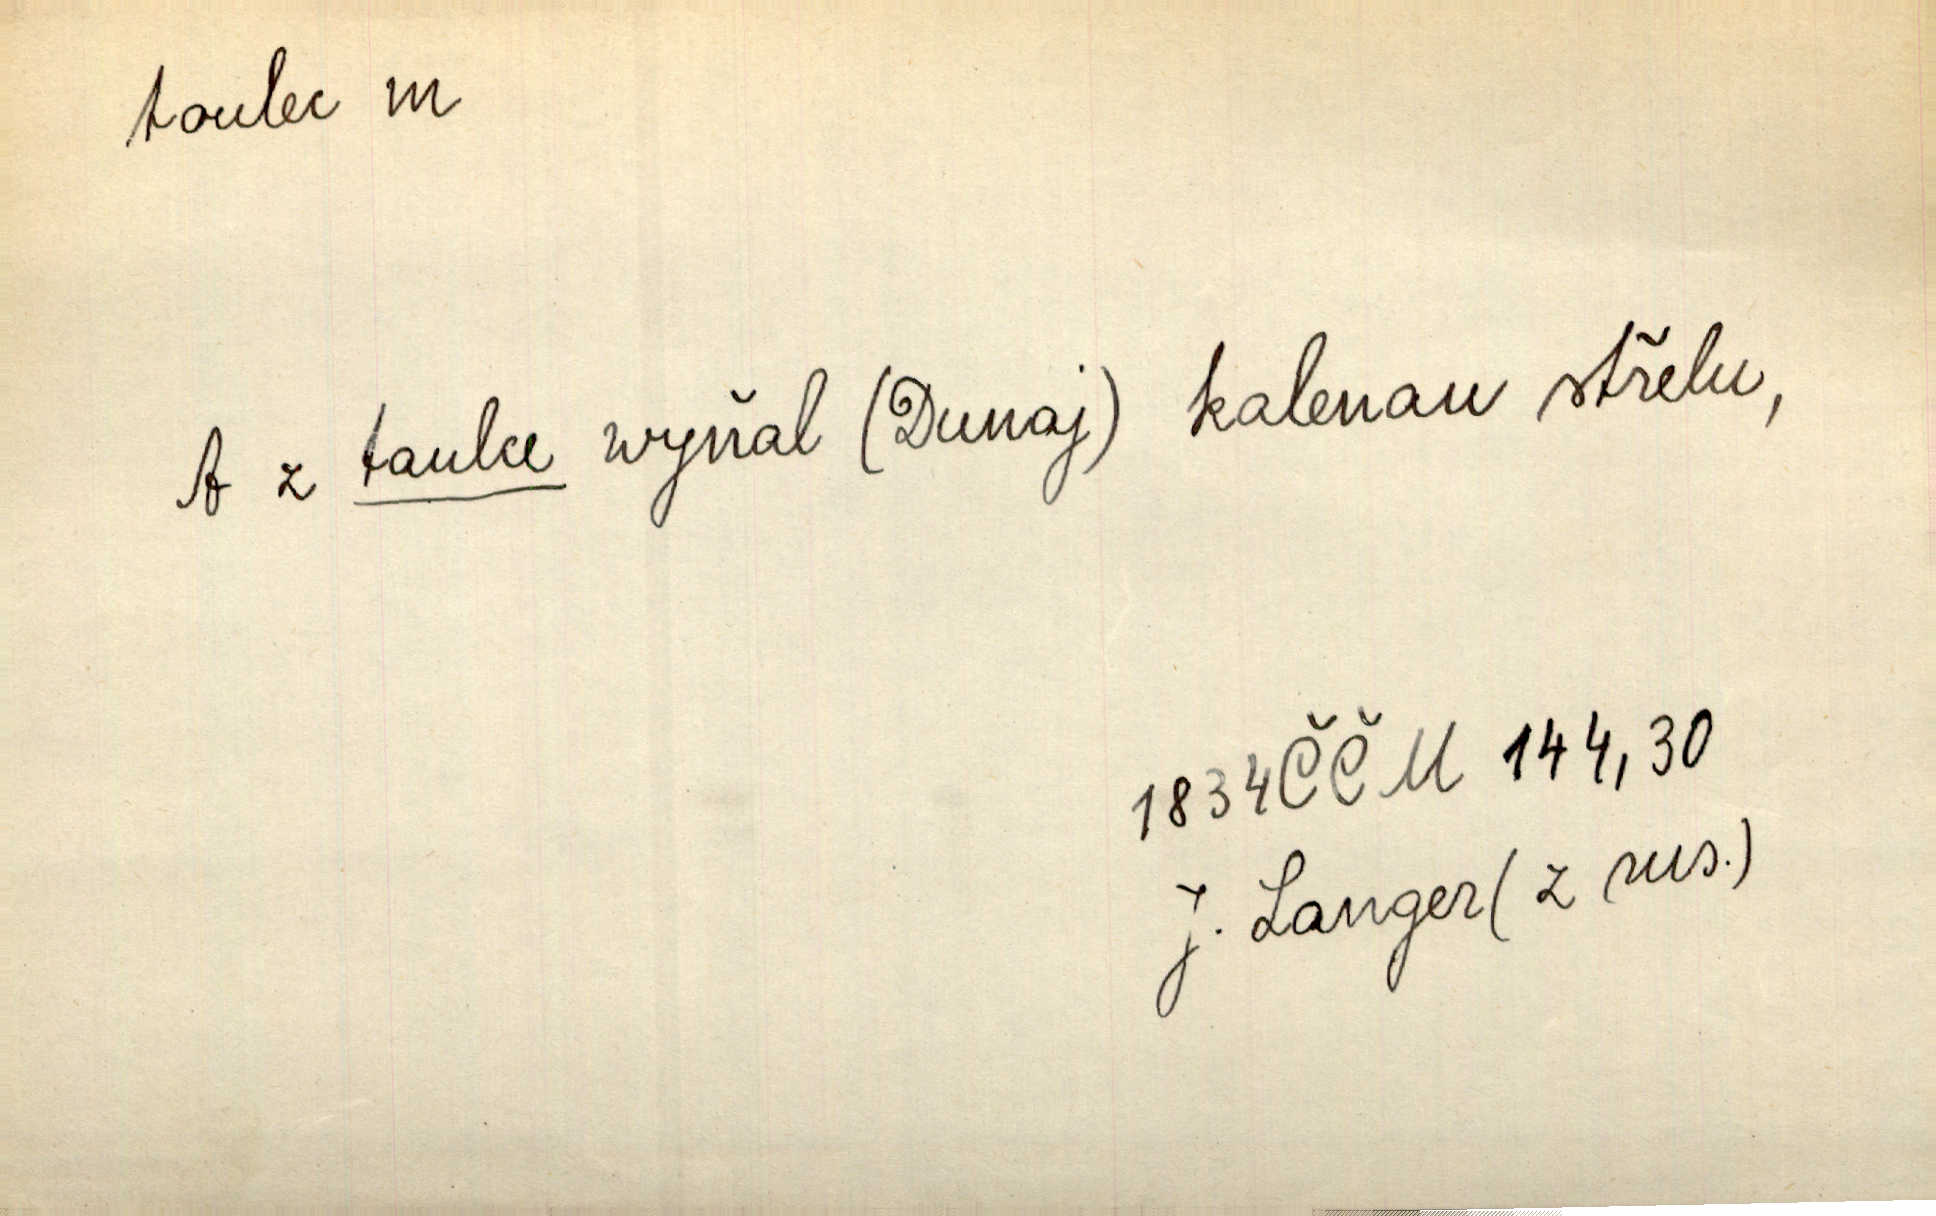 toulec m
A z taulce wyňal (Dunaj) kalenau střelu,
1834 ČČM 144,30
J. Langer (z rus.)